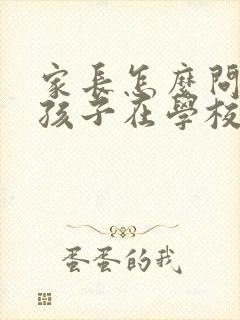 家長怎麼問
孩子在學校
蛋蛋的我